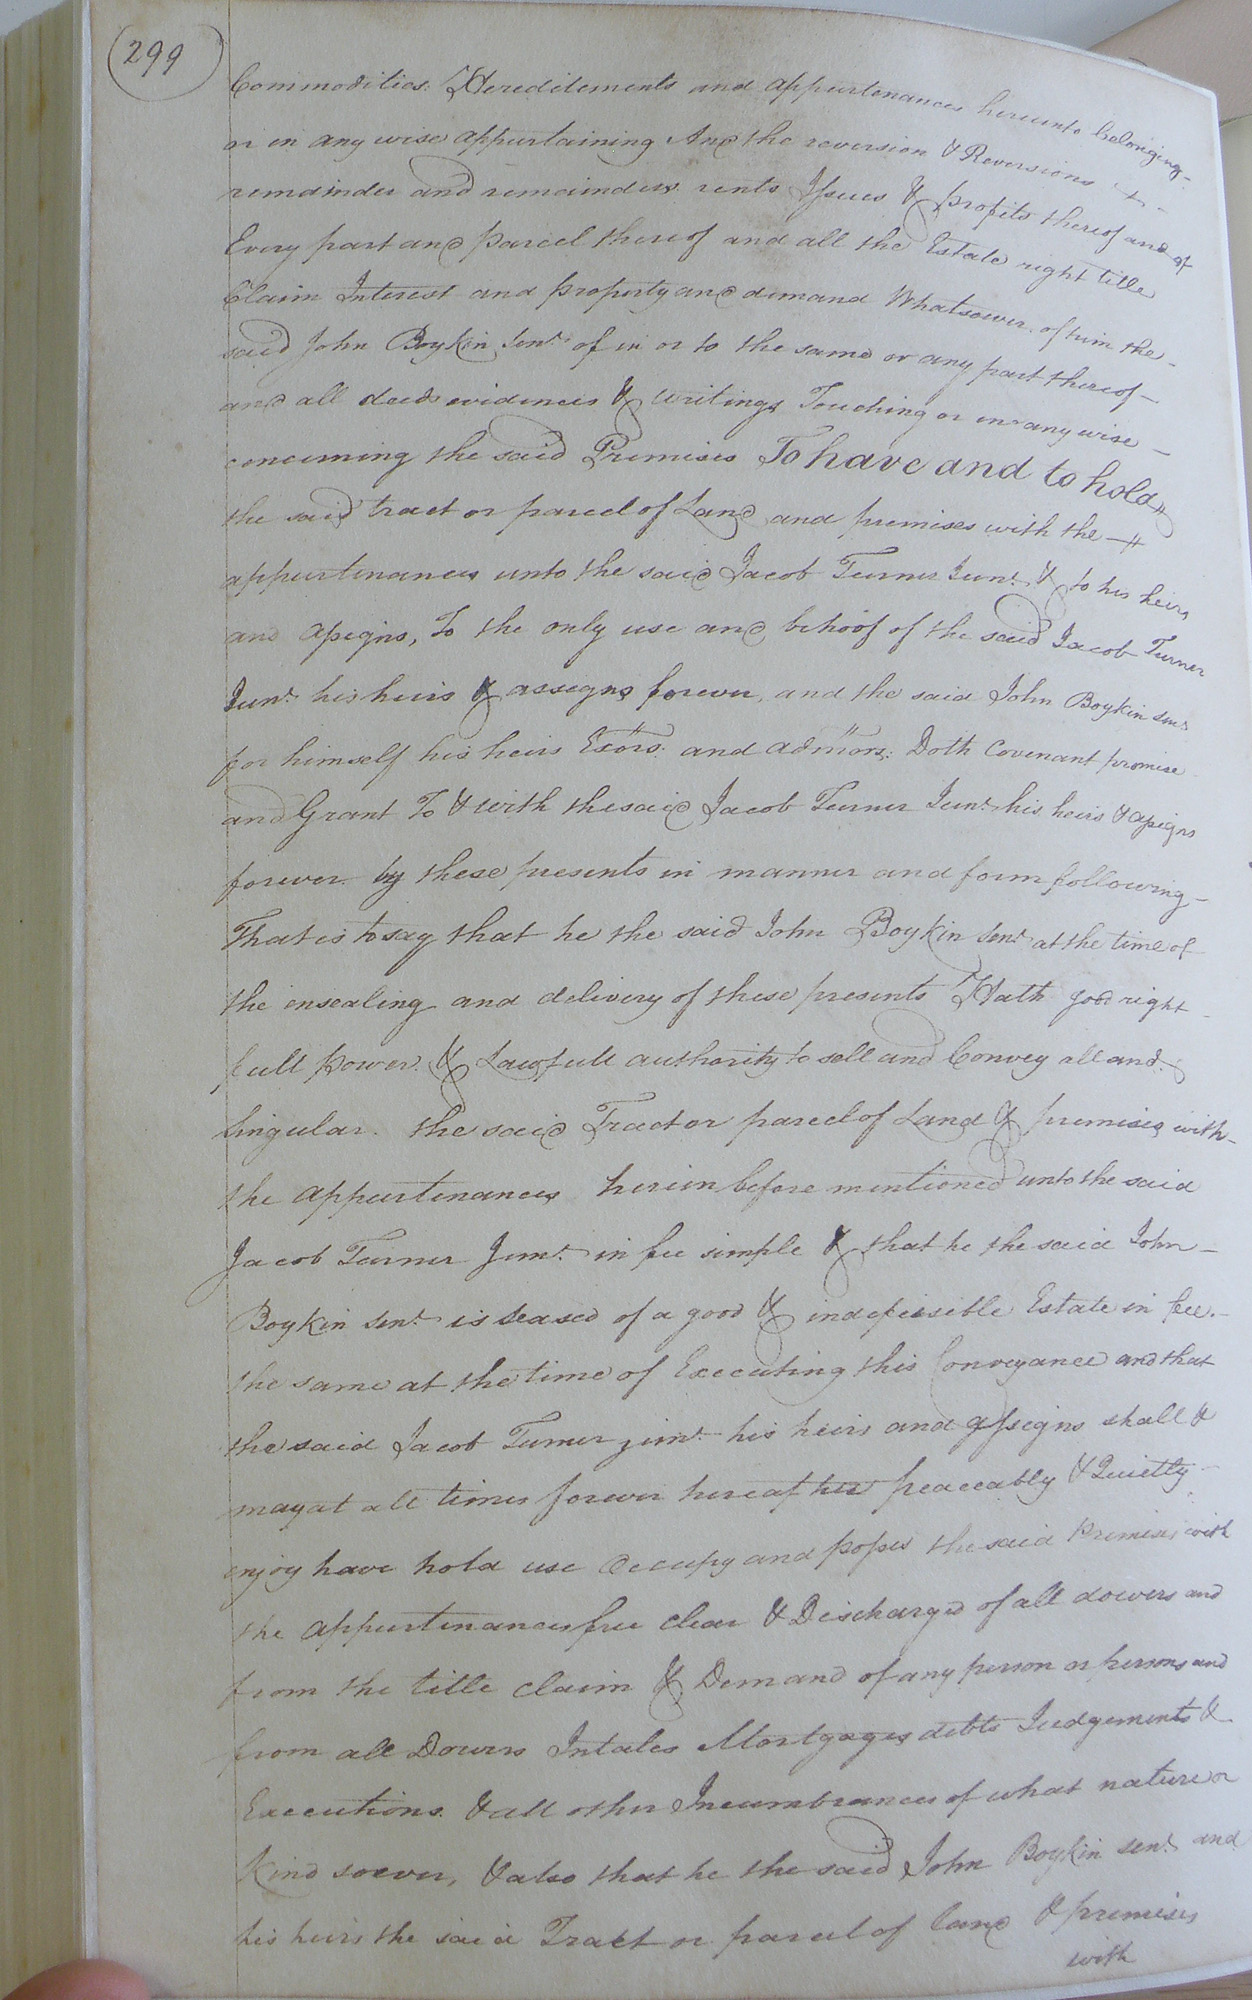 299
Commodities Hereditements and appurtenances hereunto belonging
or in any wise appurtaining And the reversion & Reversions
remainder and remainders rents Issues & profits thereof and of
Every part and parcel thereof and all the Estate right title
Claim Interest and property and demand Whatsoever of him the
said John Boykin Senr. of in or to the same or any part thereof
and all deeds evidences & writings Touching or in any wise
concerning the said Premises To have and to hold
the said tract or parcel of Land and premises with the
appurtenances unto the said Jacob Turner Junr. & to his heirs
and assigns, To the only use and behoof of the said Jacob Turner
Junr. his heirs & assigns forever, and the said John Boykin Senr
for himself his heirs Exors. and admors: Doth Covenant promise
and Grant To & with the said Jacob Turner Junr. his heirs & assigns
forever by these presents in manner and form following
That is to say that he the said John Boykin Senr. at the time of
the ensealing and delivery of these presents Hath good right
full power & Lawfull authority to sell and Convey all and
Singular the said Tract or parcel of Land & premises with
the appurtenances herein before mentioned unto the said
Jacob Turner Junr. in fee simple & that he the said John
Boykin Senr. is seased of a good & indefeisible Estate in fee.
the same at the time of Executing this Conveyance and that
the said Jacob Turner junr. his heirs and assigns shall &
may at all times forever hereafter peaceably & Quietly
enjoy have hold use occupy and posses the said Premises with
the appurtenances free clear & Discharged of all dowers and
from the title claim & Demand of any person or persons and
from all Dowers Intales Mortgages debts Judgements &
Executions & all other Incumbrances of what nature or
Kind soever, & also that he the said John Boykin Senr. and
his heirs the said Tract or parcel of land & premises
with